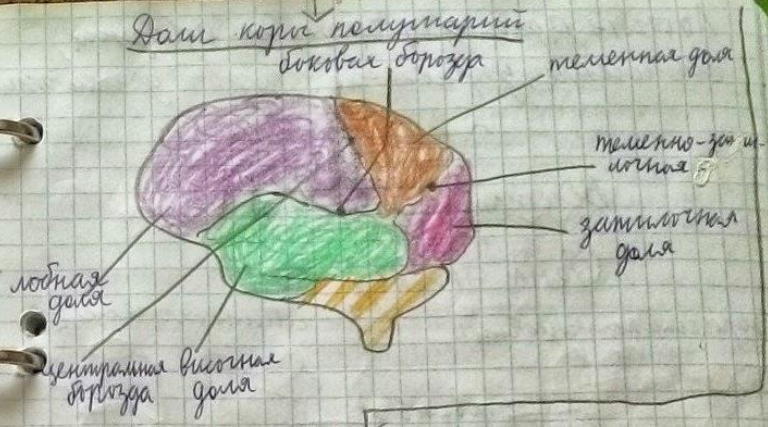 Доли коры полушарий
боковая борозда
теменная доля
теменно-заты-
лочная б
затылочная
доля
лобная
доля
центральная
борозда
височная
доля